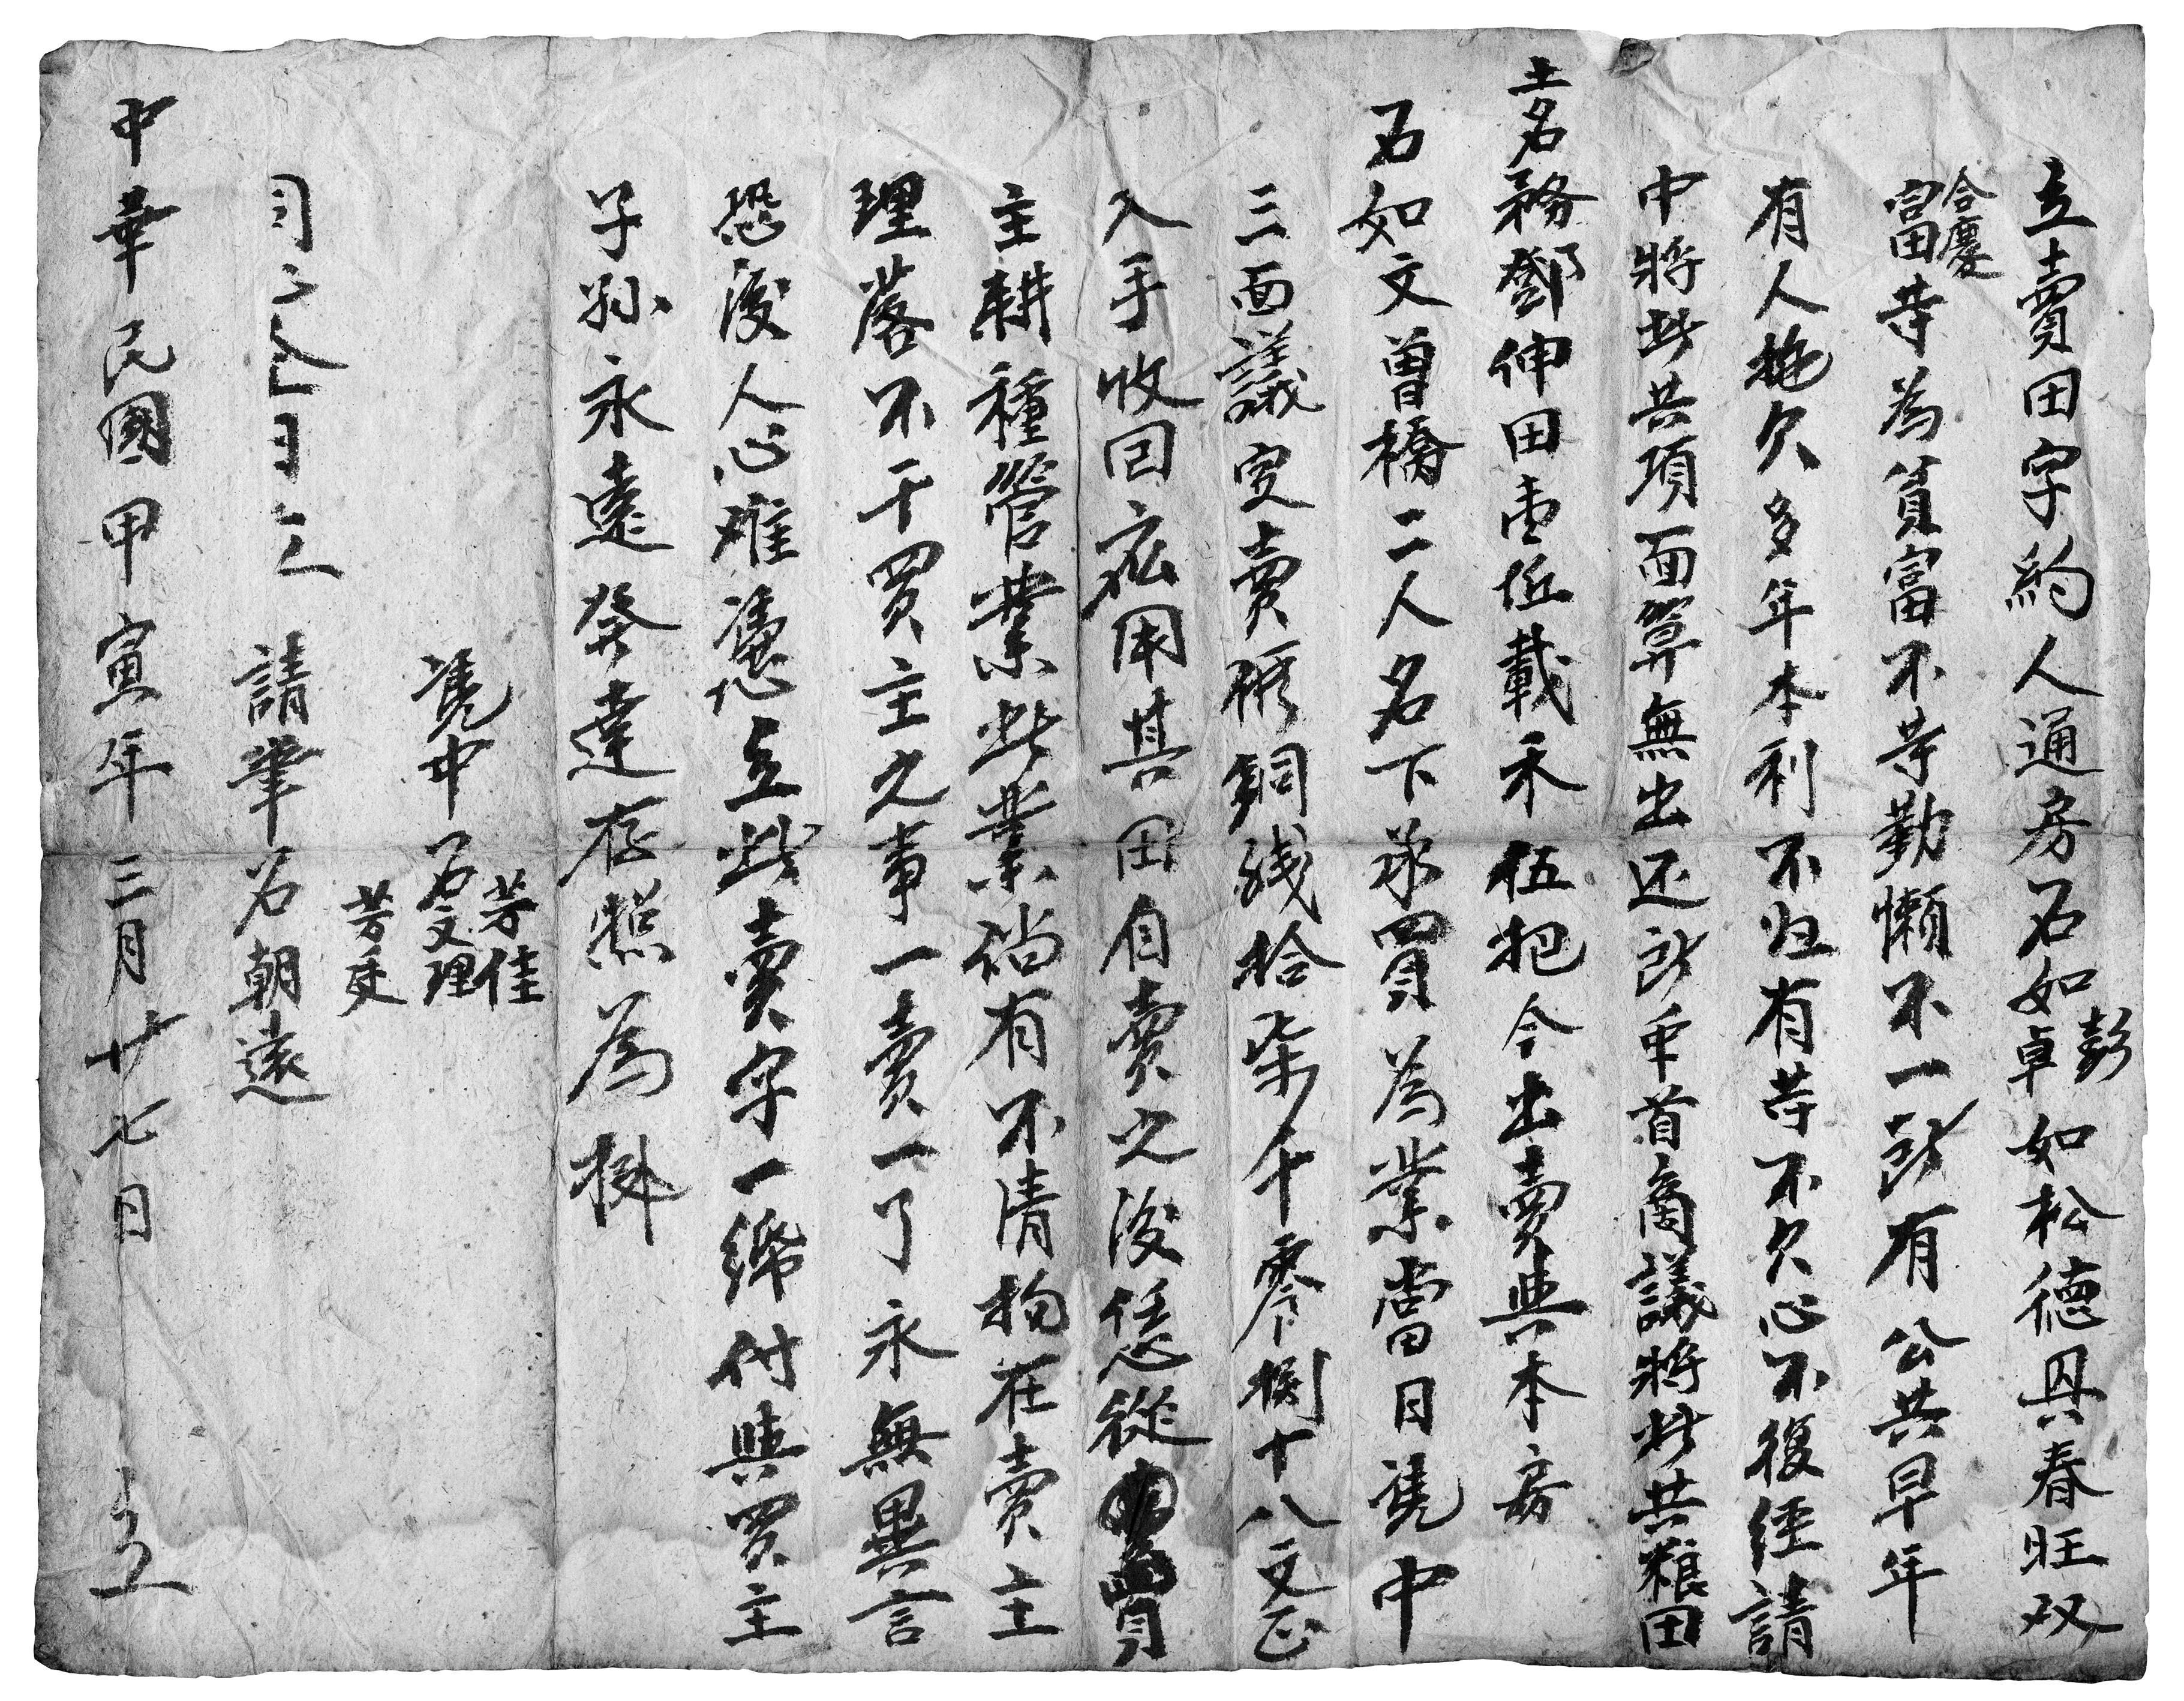 立賣田字約人通房石如彭卓如松德具春旺双
合慶富等為貧富不等勤懶不一所有公共早年
有人拖欠多年本利不归有苦不欠心不復經請
中將此共項面算無出还所重首商議將此共粮田
土名務鄧伸田壹坵載禾伍把今出賣與本房
石如文曾橋二人名下承買為業當日凴中
三面議定賣價銅錢拾柒千零捌十八文正
入手收回応用其田自賣之後任從買
主耕種管業此業倘有不清拘在賣主
理落不干買主之事一賣一了永無異言
恐後人心难憑立此賣字一紙付與買主
子孫永遠發達存照為据
凴中 石文理 芳佳 芳廷
請筆 石朝遠
中華民國甲寅年三月廿七日 立